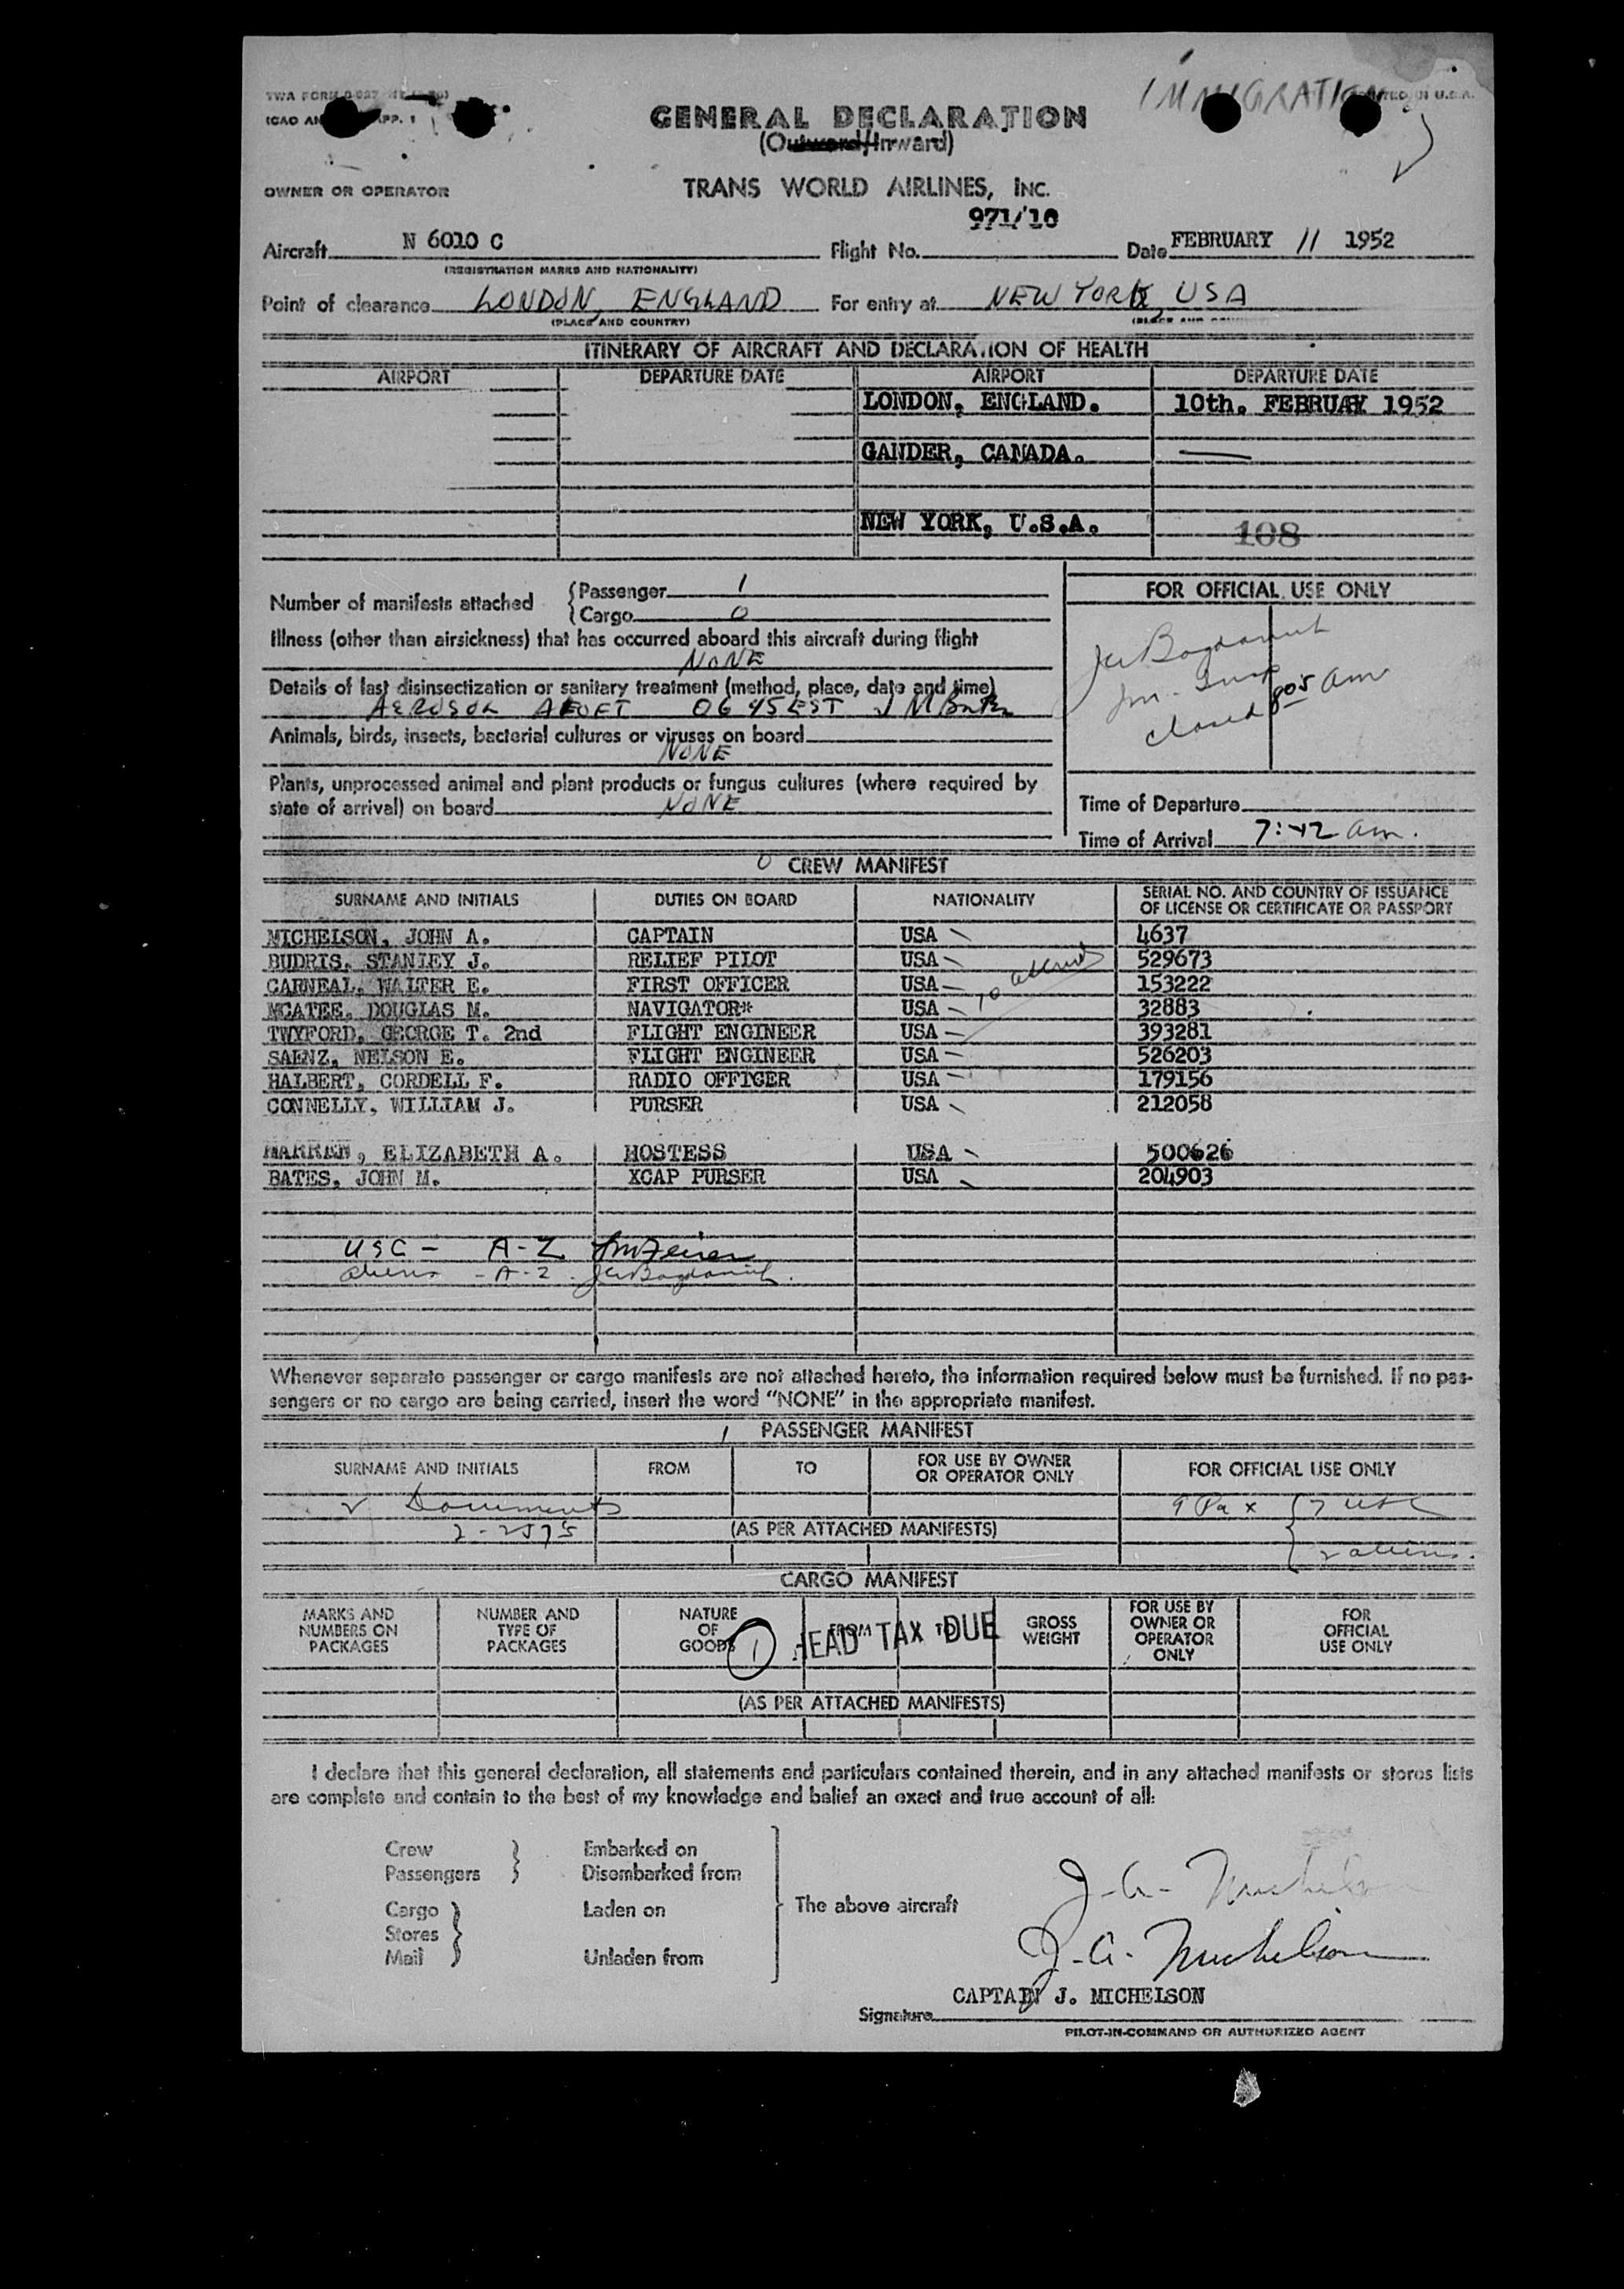 IMMIGRATION
GENERAL DECLARATION
(Outward/Inward)
OWNER OR OPERATOR TRANS WORLD AIRLINES, INC.
971/10
Aircraft N 6010 C Flight No. Date FEBRUARY 11 1952
(REGISTRATION MARKS AND NATIONALITY)
Point of clearance LONDON, ENGLAND For entry at NEW YORK, USA
(PLACE AND COUNTRY) (PLACE AND COUNTRY)
ITINERARY OF AIRCRAFT AND DECLARATION OF HEALTH
AIRPORT DEPARTURE DATE AIRPORT DEPARTURE DATE
LONDON, ENGLAND. 10th. FEBRUAY 1952
GANDER, CANADA. —
NEW YORK, U.S.A.
108
Number of manifests attached { Passenger 1
Cargo 0
FOR OFFICIAL USE ONLY
Illness (other than airsickness) that has occurred aboard this aircraft during flight
NONE
Details of last disinsectization or sanitary treatment (method, place, date and time)
AEROSOL 0645 EST
Animals, birds, insects, bacterial cultures or viruses on board
NONE
closed 805 am
Plants, unprocessed animal and plant products or fungus cultures (where required by
state of arrival) on board NONE
Time of Departure
Time of Arrival 7:42 am.
0 CREW MANIFEST
SURNAME AND INITIALS DUTIES ON BOARD NATIONALITY SERIAL NO. AND COUNTRY OF ISSUANCE
OF LICENSE OR CERTIFICATE OR PASSPORT
MICHELSON, JOHN A. CAPTAIN USA 4637
BUDRIS, STANLEY J. RELIEF PILOT USA 529673
CARNEAL, WALTER E. FIRST OFFICER USA 153222
MCATEE, DOUGLAS M. NAVIGATOR* USA 32883
TWYFORD, GEORGE T. 2nd FLIGHT ENGINEER USA 393281
SAENZ, NELSON E. FLIGHT ENGINEER USA 526203
HALBERT, CORDELL F. RADIO OFFICER USA 179156
CONNELLY, WILLIAM J. PURSER USA 212058
WARREN, ELIZABETH A. HOSTESS USA 500626
BATES, JOHN M. XCAP PURSER USA 204903
USC - A-Z
aliens - A-Z
Whenever separate passenger or cargo manifests are not attached hereto, the information required below must be furnished. If no pas-
sengers or no cargo are being carried, insert the word "NONE" in the appropriate manifest.
1 PASSENGER MANIFEST
SURNAME AND INITIALS FROM TO FOR USE BY OWNER
OR OPERATOR ONLY FOR OFFICIAL USE ONLY
Documents 9 Pax { 7 USC
2-2575 (AS PER ATTACHED MANIFESTS)
2 aliens.
CARGO MANIFEST
MARKS AND
NUMBERS ON
PACKAGES NUMBER AND
TYPE OF
PACKAGES NATURE
OF
GOODS FROM TO GROSS
WEIGHT FOR USE BY
OWNER OR
OPERATOR
ONLY FOR
OFFICIAL
USE ONLY
1 HEAD TAX DUE
(AS PER ATTACHED MANIFESTS)
I declare that this general declaration, all statements and particulars contained therein, and in any attached manifests or stores lists
are complete and contain to the best of my knowledge and belief an exact and true account of all:
Crew Embarked on
Passengers Disembarked from
Cargo Laden on The above aircraft
Stores
Mail Unladen from
J. A. Michelson
J. A. Michelson
CAPTAIN J. MICHELSON
Signature
PILOT-IN-COMMAND OR AUTHORIZED AGENT